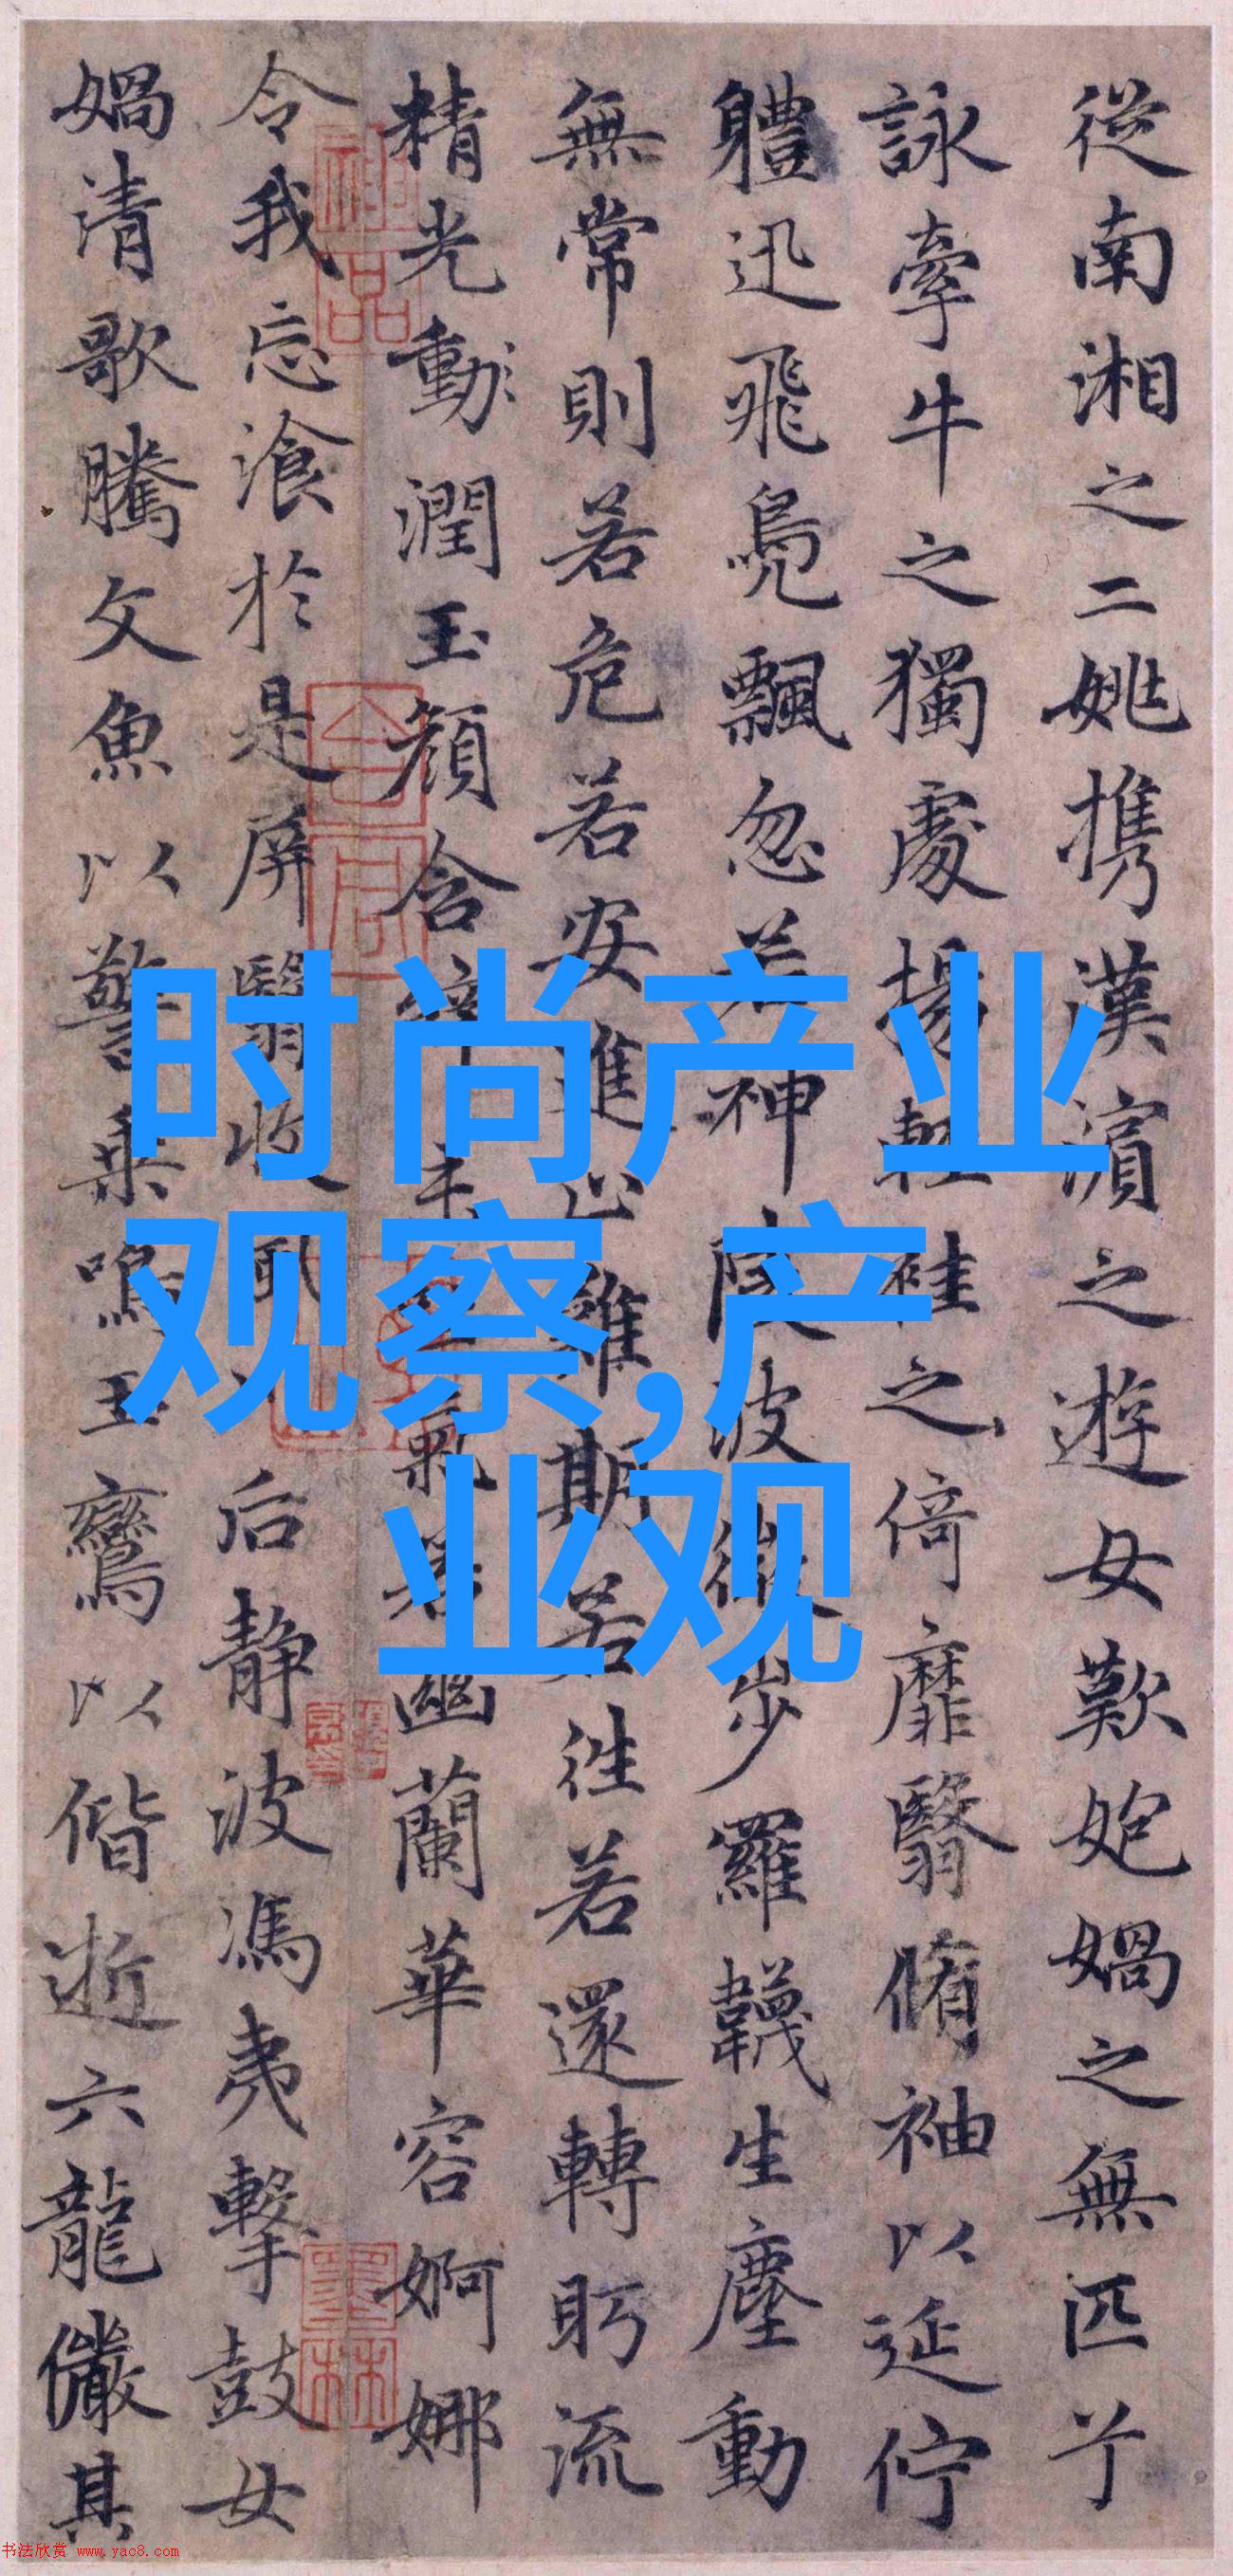 從南湘之二姚携漢濱之遊女歎匏媧之無匹兮
詠牽牛之獨處揚輕袿之倚靡翳脩袖以延佇
軆迅飛鳧飄忽若神陵波微步羅韈生塵動
無常則若危若安進止難期若往若還轉眄流
精光動潤玉顏含辭未吐氣若幽蘭華容婀娜
令我忘飡於是屏翳收風川后靜波馮夷擊鼓女
媧清歌騰文魚以警乘鳴玉鸞以偕逝六龍儼其
神品
墨林
时尚产业
观察,产
业观
书法欣赏 www.yac8.com